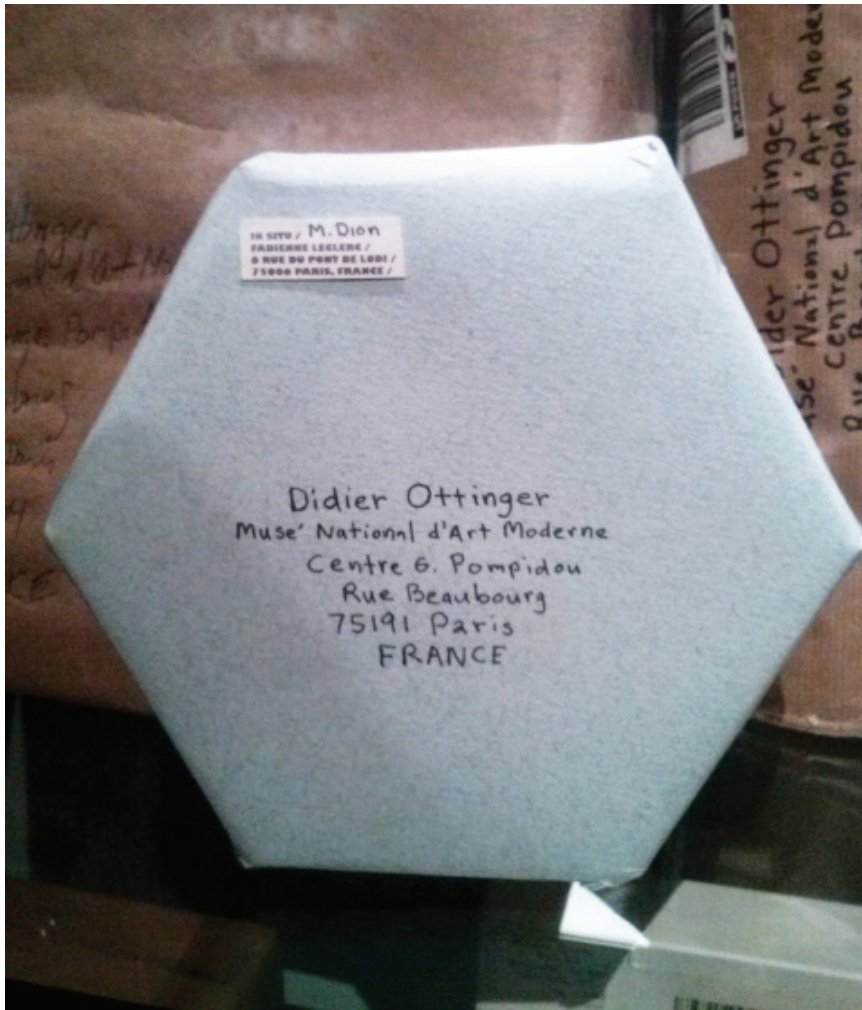 IN SITU / M. Dion
FABIENNE LECLERC /
6 RUE DU PONT DE LODI /
75006 PARIS, FRANCE /
Didier Ottinger
Muse' National d'Art Moderne
Centre G. Pompidou
Rue Beaubourg
75191 Paris
FRANCE
Ottinger
National d'Art Moder
Centre Pompidou
Rue